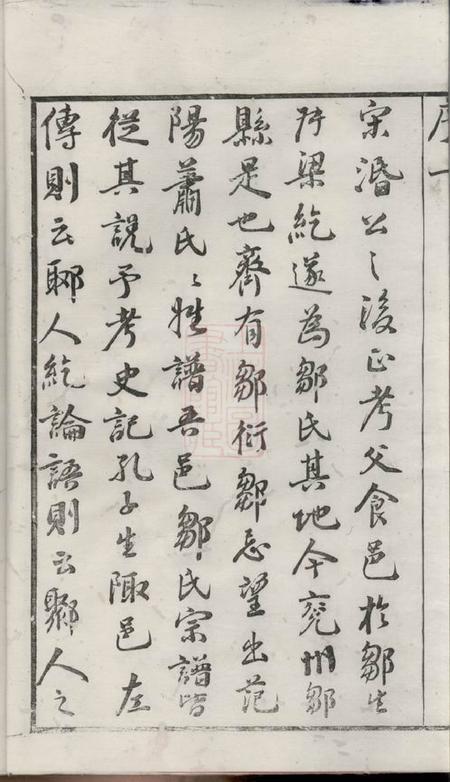 序一
宋湣公之後正考父食邑於鄒生
叔梁紇遂為鄒氏其地今兖州鄒
縣是也齊有鄒衍鄒忌望出范
陽蕭氏〻姓譜吾邑鄒氏宗譜皆
從其說予考史記孔子生陬邑左
傳則云郰人紇論語則云鄹人之